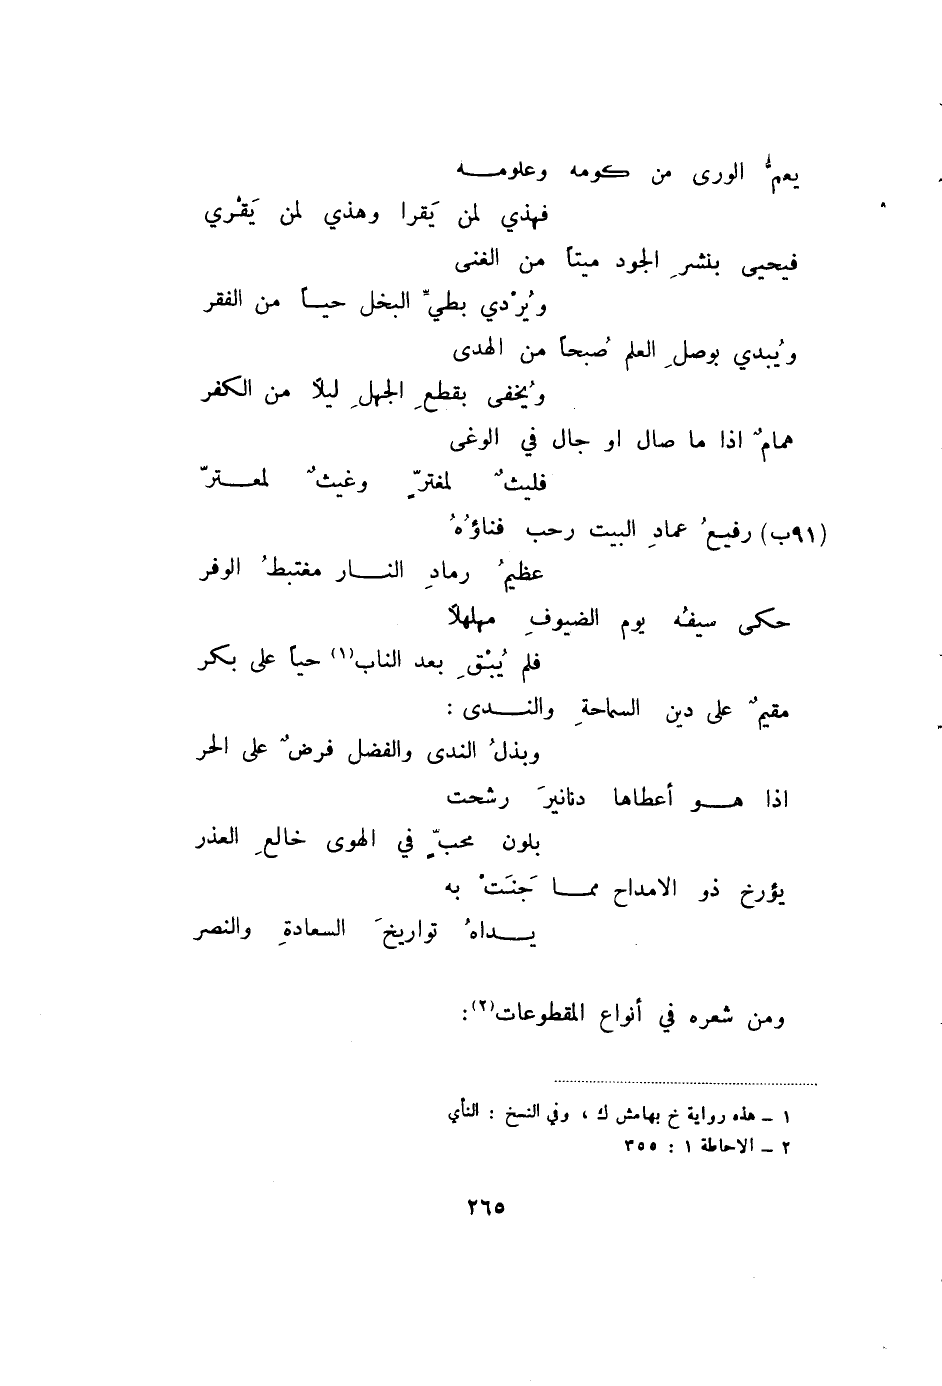 يعمُّ الورى من كومه وعلومـــه
فهذي لمن يَقرا وهذي لمن يَقْري
فيحيى بنشرِ الجود ميتاً من الغنى
ويُرْدي بطيِّ البخل حيـــاً من الفقر
ويُبدي بوصلِ العلم صُبحاً من الهدى
ويُخفى بقطعِ الجهلِ ليلاً من الكفر
همامٌ اذا ما صال او جال في الوغى
فليثٌ لمغترٍّ وغيثٌ لمعـــترّ
(٩١ب) رفيعُ عمادِ البيت رحب فناؤُهُ
عظيمُ رمادِ النـــار مغتبطُ الوفر
حكى سيفُه يوم الضيوفِ مهلهلاً
فلم يُبْقِ بعد الناب(١) حياً على بكر
مقيمٌ على دين السماحةِ والنـــدى :
وبذلُ الندى والفضل فرضٌ على الحر
اذا هـــو أعطاها دنانيرَ رشحت
بلون محبٍّ في الهوى خالعِ العذر
يؤرخ ذو الامداح ممـــا جَنَتْ به
يـــداهُ تواريخَ السعادةِ والنصر
ومن شعره في أنواع المقطوعات(٢):
١ ــ هذه رواية خ بهامش ك ، وفي النسخ : النأي
٢ ــ الاحاطة ١ : ٣٥٥
٢٦٥